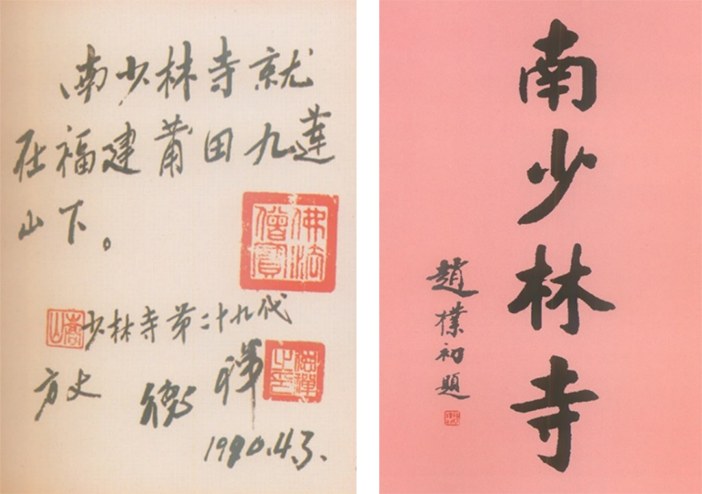 南少林寺就
在福建莆田九莲
山下。
佛法
僧寳
嵩山
少林寺第二十九代
方丈 德禅
1990.4.3.
南少林寺
趙樸初題